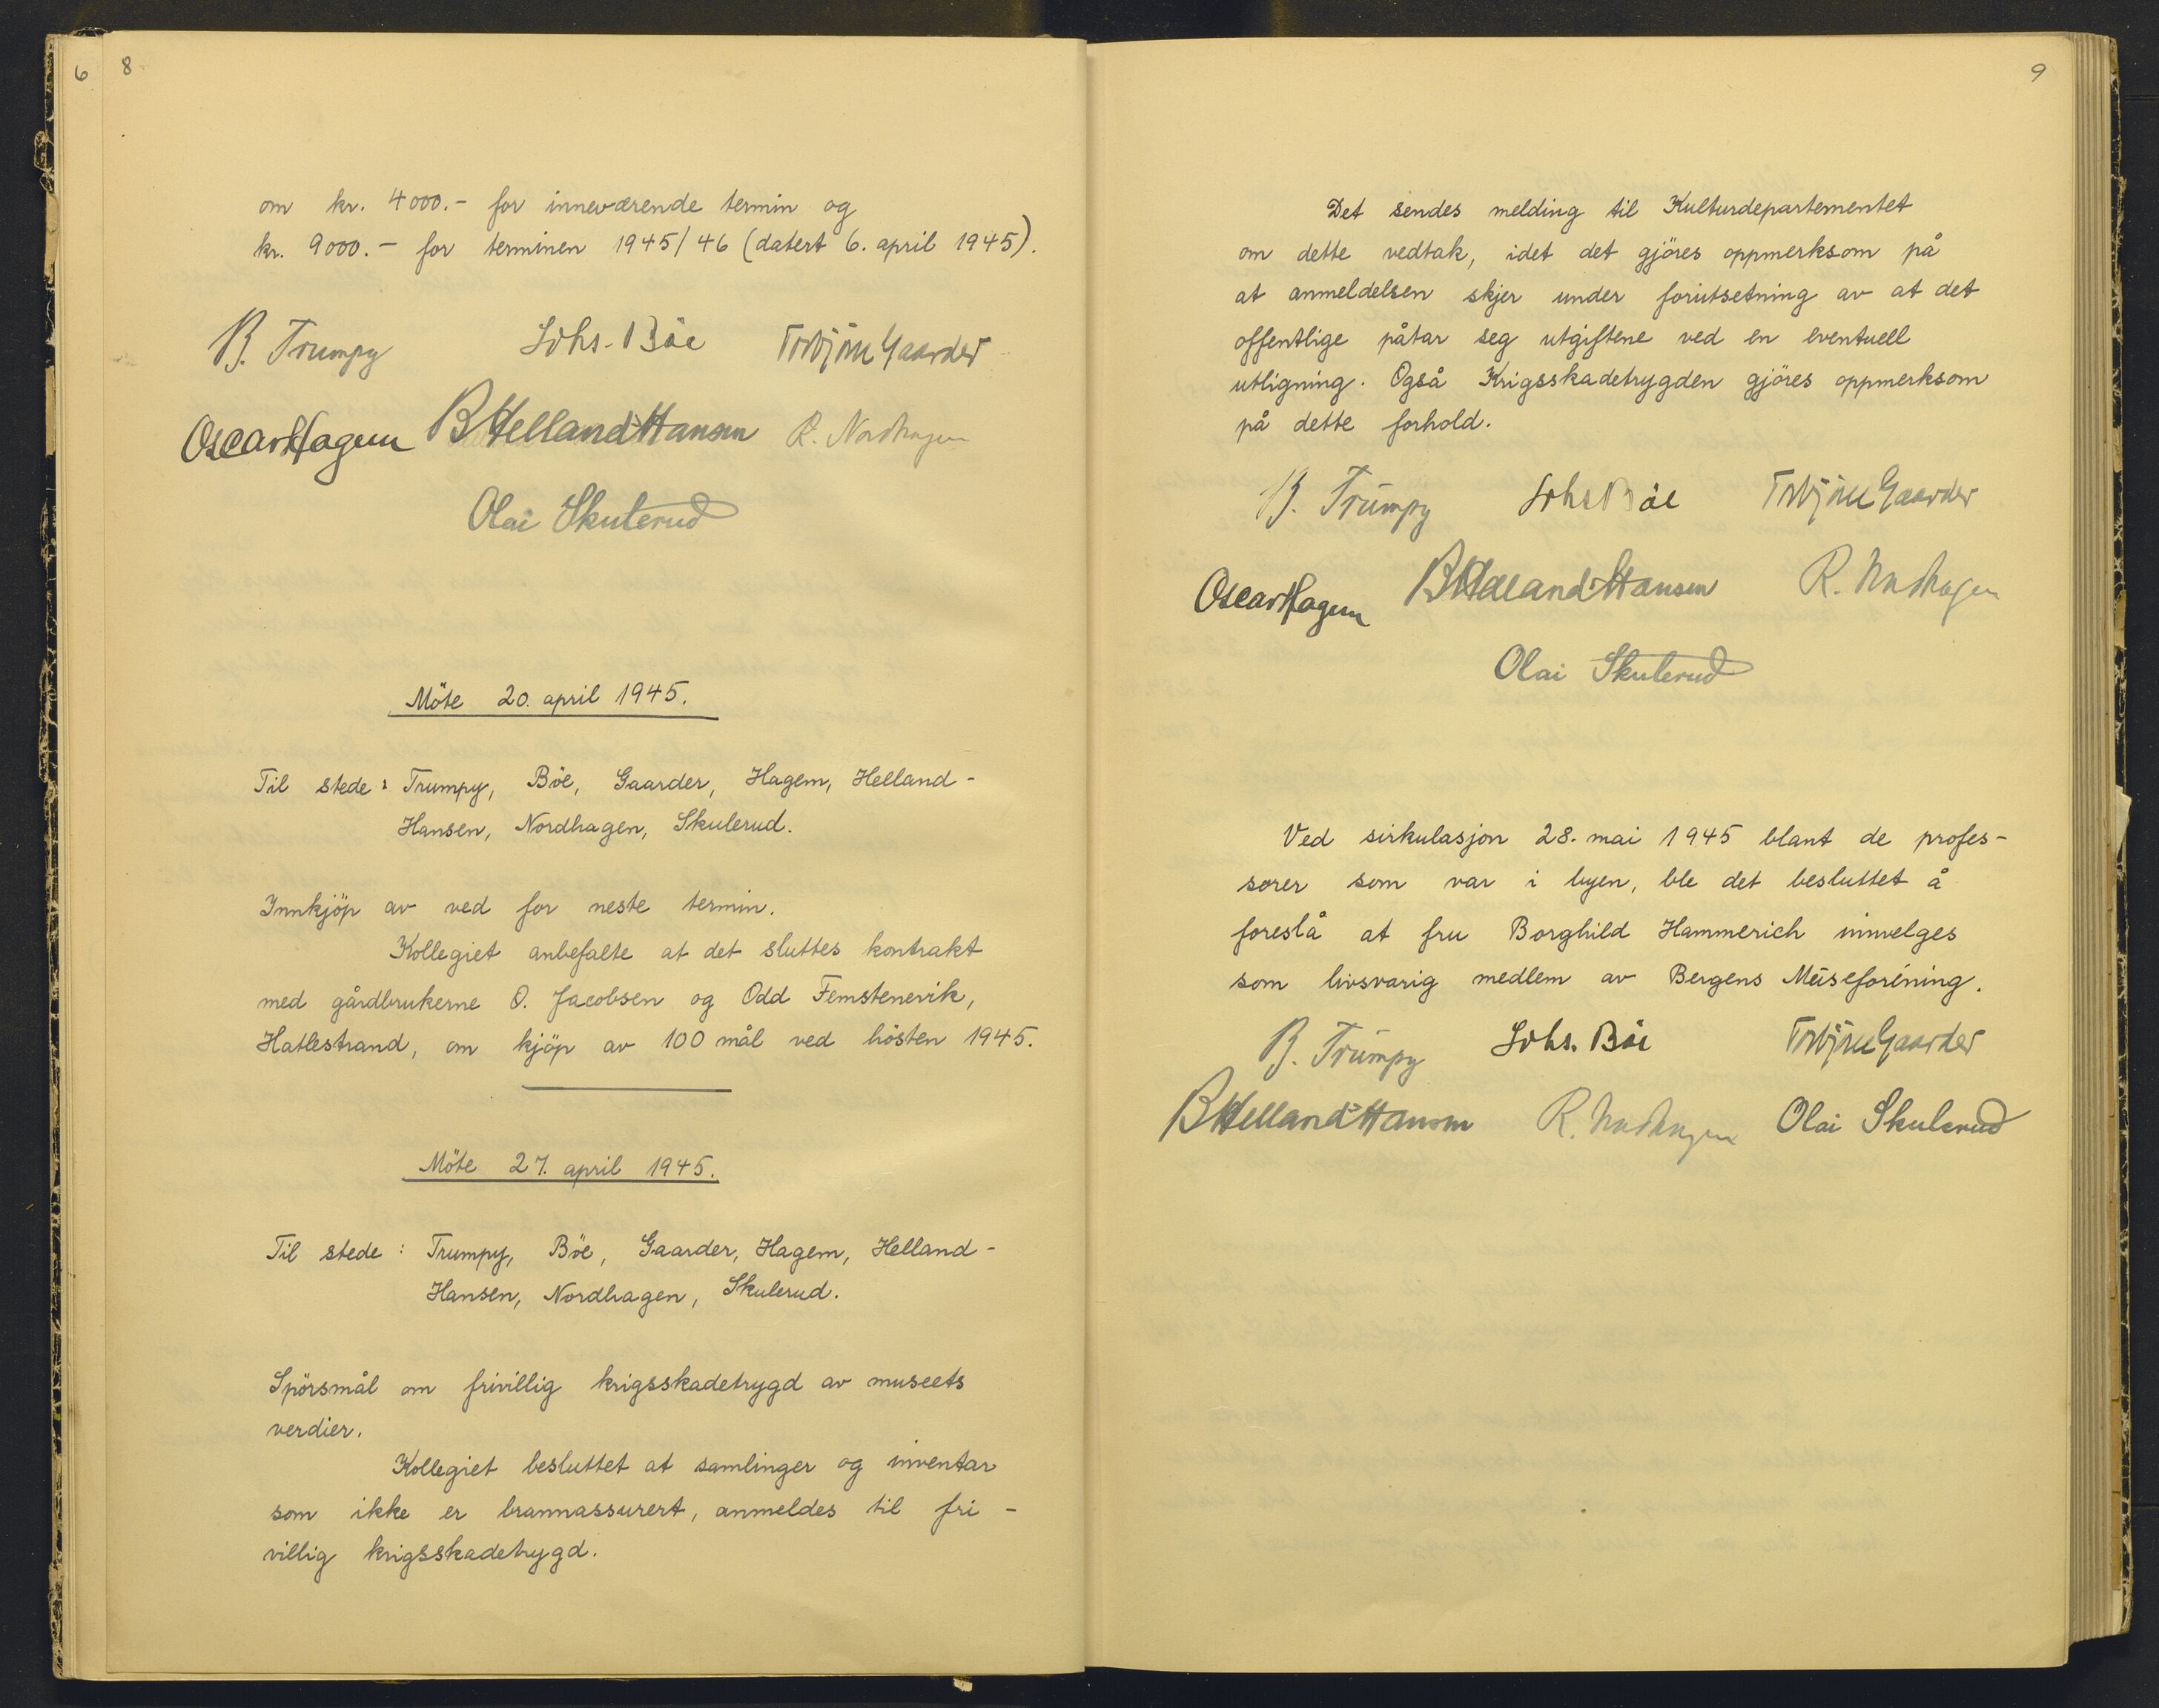 6 8
om kr. 4000.- for inneværende termin og
kr. 9000.- for terminen 1945/46 (datert 6. april 1945).
B. Trumpy Johs. Böe Torbjörn Gaarder
Oscar Hagem B Helland-Hansen R. Nordhagen
Olai Skulerud
Möte 20. april 1945.
Til stede: Trumpy, Böe, Gaarder, Hagem, Helland-
Hansen, Nordhagen, Skulerud.
Innkjöp av ved for neste termin.
Kollegiet anbefalte at det sluttes kontrakt
med gårdbrukerne O. Jacobsen og Odd Femstenevik,
Hatlestrand, om kjöp av 100 mål ved hösten 1945.
Möte 27. april 1945.
Til stede: Trumpy, Böe, Gaarder, Hagem, Helland-
Hansen, Nordhagen, Skulerud.
Spörsmål om frivillig krigsskadetrygd av museets
verdier.
Kollegiet besluttet at samlinger og inventar
som ikke er brannassurert, anmeldes til fri-
villig krigsskadetrygd.
9
Det sendes melding til Kulturdepartementet
om dette vedtak, idet det gjöres oppmerksom på
at anmeldelsen skjer under forutsetning av at det
offentlige påtar seg utgiftene ved en eventuell
utligning. Også Krigsskadetrygden gjöres oppmerksom
på dette forhold.
B. Trumpy Johs Böe Torbjörn Gaarder
Oscar Hagem B Helland-Hansen R. Nordhagen
Olai Skulerud
Ved sirkulasjon 28. mai 1945 blant de profes-
sorer som var i byen, ble det besluttet å
foreslå at fru Borghild Hammerich innvelges
som livsvarig medlem av Bergens Museforening.
B. Trumpy Johs. Böe Torbjörn Gaarder
B Helland-Hansen R. Nordhagen Olai Skulerud